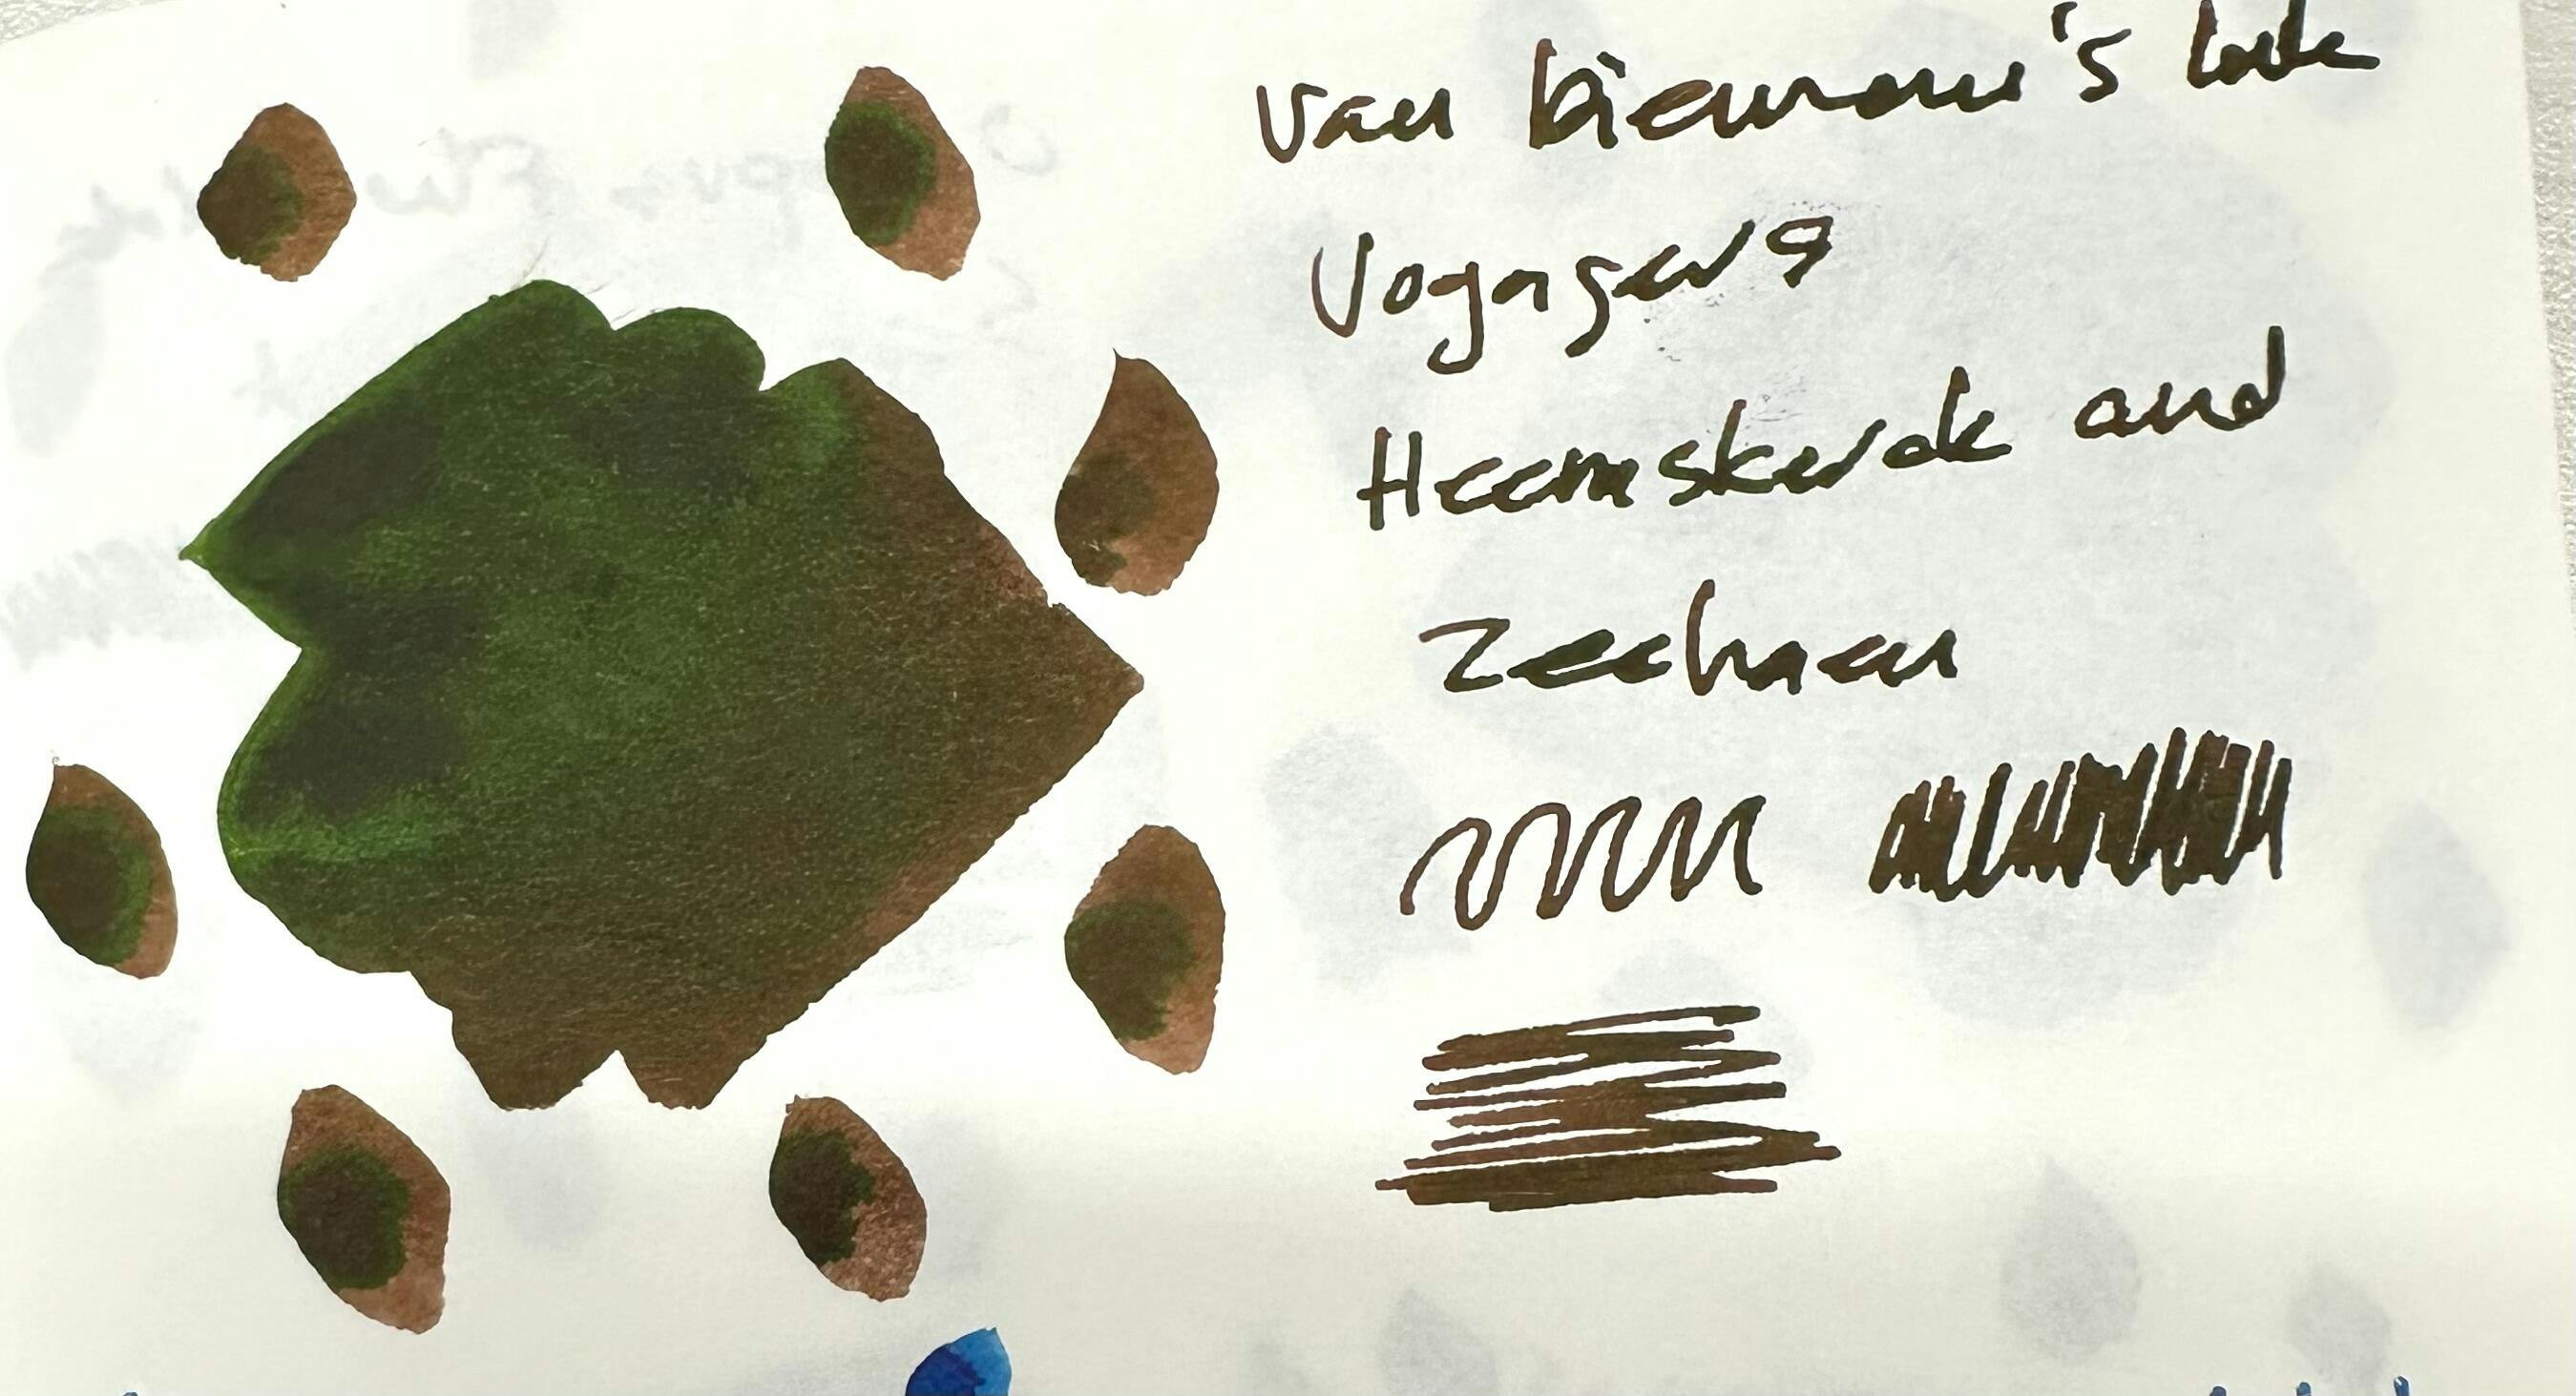 Van Dieman's Ink
Voyagers
Heemskerck and
Zeehaen